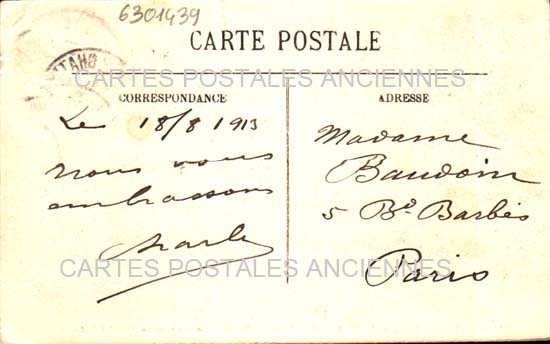 6301439
CARTE POSTALE
CARTES POSTALES ANCIENNES
CORRESPONDANCE
Le 18/8 1913
Nous vous
embrassons
Charles
ADRESSE
Madame
Baudoin
5 Bd Barbès
Paris
CARTES POSTALES ANCIENNES